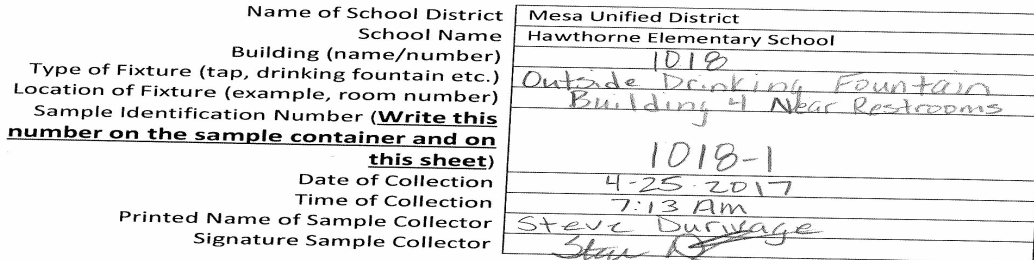 Name of School District Mesa Unified District
School Name Hawthorne Elementary School
Building (name/number) 1018
Type of Fixture (tap, drinking fountain etc.) Outside Drinking Fountain
Location of Fixture (example, room number) Building 4 Near Restrooms
Sample Identification Number (Write this
number on the sample container and on
this sheet) 1018-1
Date of Collection 4-25-2017
Time of Collection 7:13 Am
Printed Name of Sample Collector Steve Durivage
Signature Sample Collector